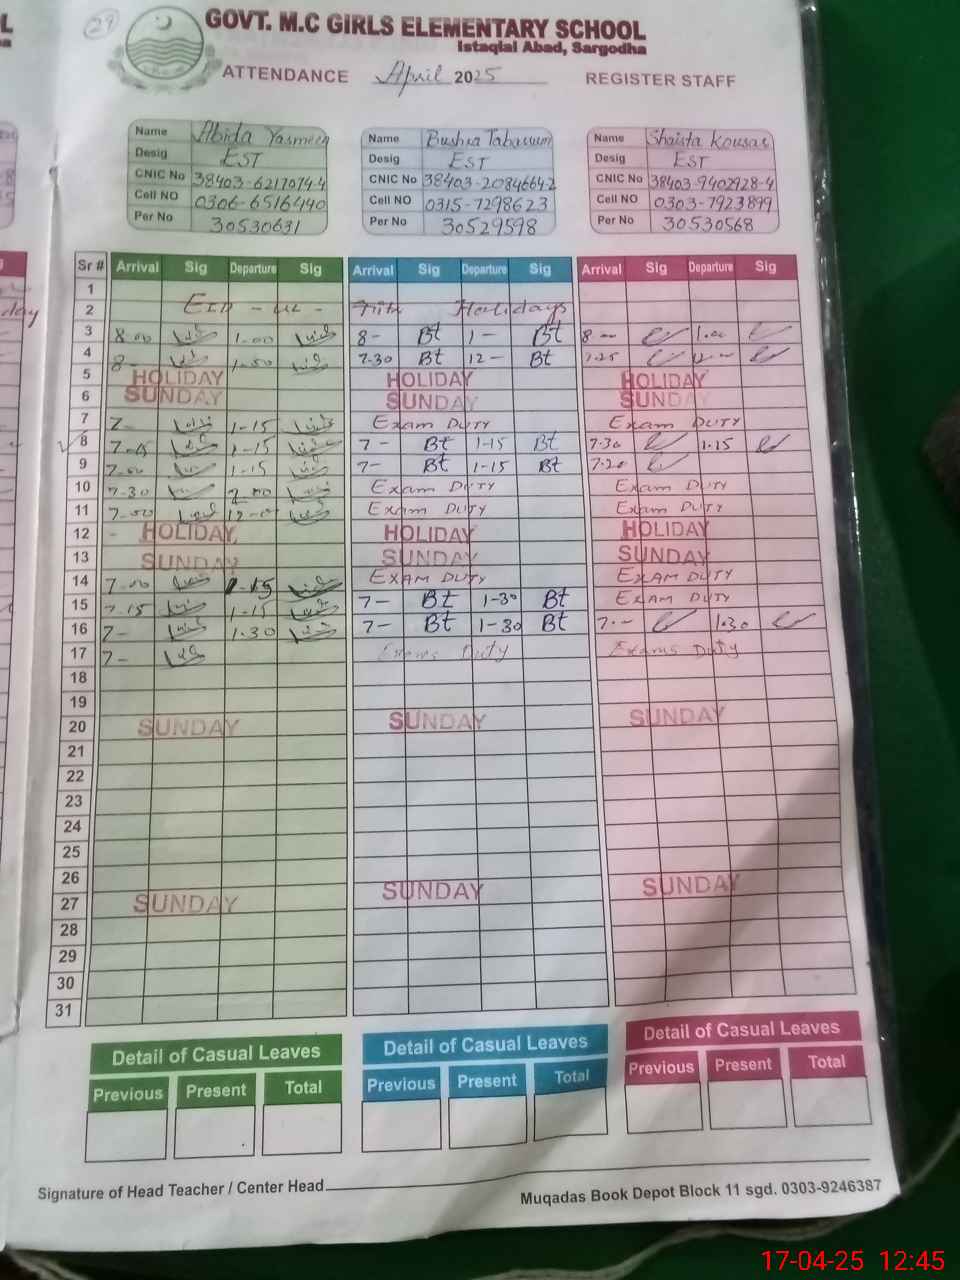 29
GOVT. M.C GIRLS ELEMENTARY SCHOOL
Istaqlal Abad, Sargodha
ATTENDANCE April 2025 REGISTER STAFF
Name Abida Yasmeen Name Bushra Tabassum Name Shaista Kousar
Desig EST Desig EST Desig EST
CNIC No 38403-6217074-4 CNIC No 38403-2084664-2 CNIC No 38403-9402928-4
Cell NO 0306-6516440 Cell NO 0315-7298623 Cell NO 0303-7923899
Per No 30530631 Per No 30529598 Per No 30530568
Sr # Arrival Sig Departure Sig Arrival Sig Departure Sig Arrival Sig Departure Sig
1
2 EID - UL - Fitr Holidays
3 8-00 1-00 8- Bt 1- Bt 8- 1.00
4 8- 1-00 7-30 Bt 12- Bt 7.25 12-
5 HOLIDAY HOLIDAY HOLIDAY
6 SUNDAY SUNDAY SUNDAY
7 7- 1-15 Exam DUTY Exam DUTY
8 7-15 1-15 7- Bt 1-15 Bt 7-30 1.15
9 7-00 1-15 7- Bt 1-15 Bt 7.20
10 7-30 2-00 Exam DUTY Exam DUTY
11 7-00 12-0 Exam DUTY Exam DUTY
12 - HOLIDAY HOLIDAY HOLIDAY
13 SUNDAY SUNDAY SUNDAY
14 7-00 1-15 EXAM DUTY EXAM DUTY
15 7-15 1-15 7- Bt 1-30 Bt EXAM DUTY
16 7- 1.30 7- Bt 1-30 Bt 7.- 1.30
17 7- Exams Duty Exams Duty
18
19
20 SUNDAY SUNDAY SUNDAY
21
22
23
24
25
26
27 SUNDAY SUNDAY SUNDAY
28
29
30
31
Detail of Casual Leaves Detail of Casual Leaves Detail of Casual Leaves
Previous Present Total Previous Present Total Previous Present Total
Signature of Head Teacher / Center Head
Muqadas Book Depot Block 11 sgd. 0303-9246387
17-04-25 12:45